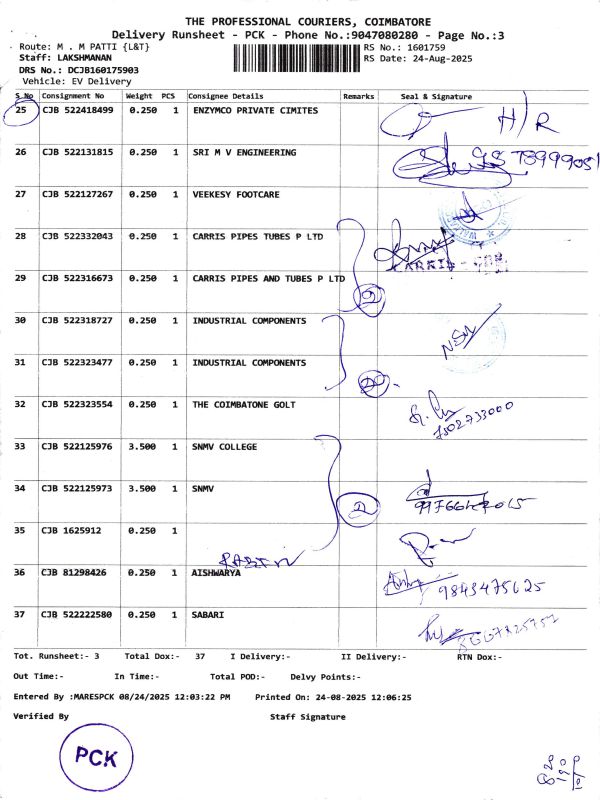 THE PROFESSIONAL COURIERS, COIMBATORE
Delivery Runsheet - PCK - Phone No.:9047080280 - Page No.:3
Route: M . M PATTI {L&T}
RS No.: 1601759
Staff: LAKSHMANAN
RS Date: 24-Aug-2025
DRS No.: DCJB160175903
Vehicle: EV Delivery
S No Consignment No Weight PCS Consignee Details Remarks Seal & Signature
25 CJB 522418499 0.250 1 ENZYMCO PRIVATE CIMITES H/R
26 CJB 522131815 0.250 1 SRI M V ENGINEERING
27 CJB 522127267 0.250 1 VEEKESY FOOTCARE
28 CJB 522332043 0.250 1 CARRIS PIPES TUBES P LTD
29 CJB 522316673 0.250 1 CARRIS PIPES AND TUBES P LTD
30 CJB 522318727 0.250 1 INDUSTRIAL COMPONENTS
31 CJB 522323477 0.250 1 INDUSTRIAL COMPONENTS
32 CJB 522323554 0.250 1 THE COIMBATONE GOLT
7502733000
33 CJB 522125976 3.500 1 SNMV COLLEGE
34 CJB 522125973 3.500 1 SNMV 2
35 CJB 1625912 0.250 1
36 CJB 81298426 0.250 1 AISHWARYA 9843475625
37 CJB 522222580 0.250 1 SABARI
Tot. Runsheet:- 3 Total Dox:- 37 I Delivery:- II Delivery:- RTN Dox:-
Out Time:- In Time:- Total POD:- Delvy Points:-
Entered By :MARESPCK 08/24/2025 12:03:22 PM Printed On: 24-08-2025 12:06:25
Verified By Staff Signature
PCK